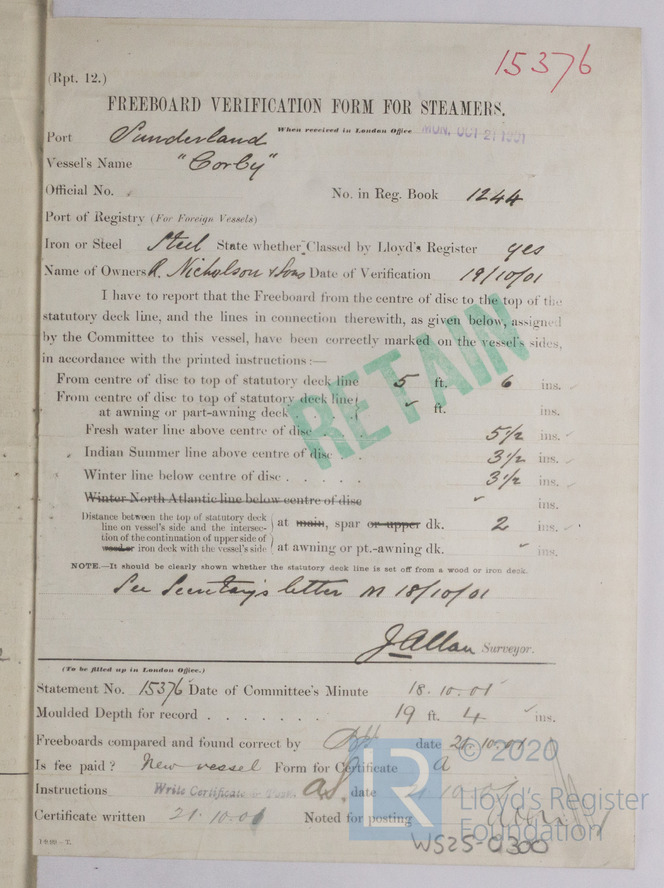 15376
(Rpt. 12.)
FREEBOARD VERIFICATION FORM FOR STEAMERS.
When received in London Office MON. OCT 21 1901
Port Sunderland
Vessel's Name "Corby"
Official No.
No. in Reg. Book 1244
Port of Registry (For Foreign Vessels)
Iron or Steel Steel State whether Classed by Lloyd's Register yes
Name of Owners R. Nicholson & Sons Date of Verification 19/10/01
I have to report that the Freeboard from the centre of disc to the top of the
statutory deck line, and the lines in connection therewith, as given below, assigned
by the Committee to this vessel, have been correctly marked on the vessel's sides,
in accordance with the printed instructions:—
RETAIN
From centre of disc to top of statutory deck line 5 ft. 6 ins.
From centre of disc to top of statutory deck line
at awning or part-awning deck . . . . ft. ins.
Fresh water line above centre of disc . . 5 1/2 ins.
Indian Summer line above centre of disc . . 3 1/2 ins.
Winter line below centre of disc . . . . . 3 1/2 ins.
Winter North Atlantic line below centre of disc ins.
Distance between the top of statutory deck
line on vessel's side and the intersec-
tion of the continuation of upper side of
wood or iron deck with the vessel's side
at main, spar or upper dk. 2 ins.
at awning or pt.-awning dk. ins.
NOTE.—It should be clearly shown whether the statutory deck line is set off from a wood or iron deck.
See Secretary's letter M 18/10/01
J Allan Surveyor.
(To be filled up in London Office.)
Statement No. 15376 Date of Committee's Minute 18.10.01
Moulded Depth for record . . . . . . . 19 ft. 4 ins.
Freeboards compared and found correct by date 21.10.01
Is fee paid? New vessel Form for Certificate A
Instructions Write Certificate date 21 10 01
Certificate written 21.10.01 Noted for posting
© 2020
LR
Lloyd's Register
Foundation
WS25-0300